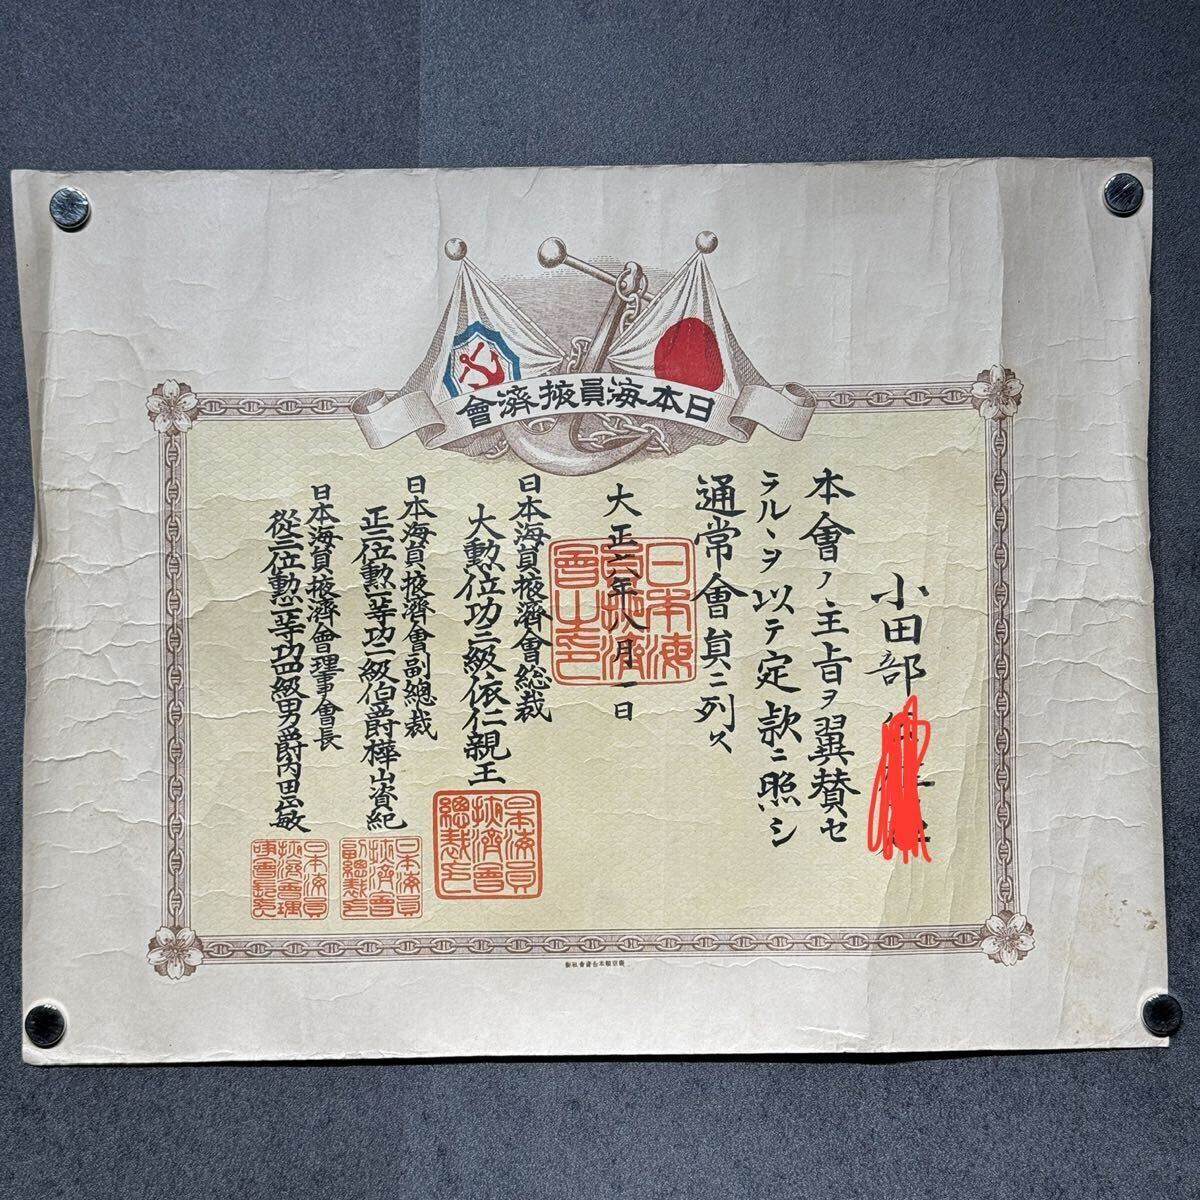 日本海員掖濟會
小田部
本會ノ主旨ヲ翼賛セ
ラルヽヲ以テ定款ニ照シ
通常會員ニ列ス
大正六年八月一日
日本海員掖濟會之印
日本海員掖濟會総裁
大勲位功三級依仁親王
日本海員掖濟會總裁之印
日本海員掖濟會副總裁
正二位勲一等功二級伯爵樺山資紀
日本海員掖濟會副總裁之印
日本海員掖濟會理事會長
從三位勲一等功四級男爵内田正敏
日本海員掖濟會理事會長之印